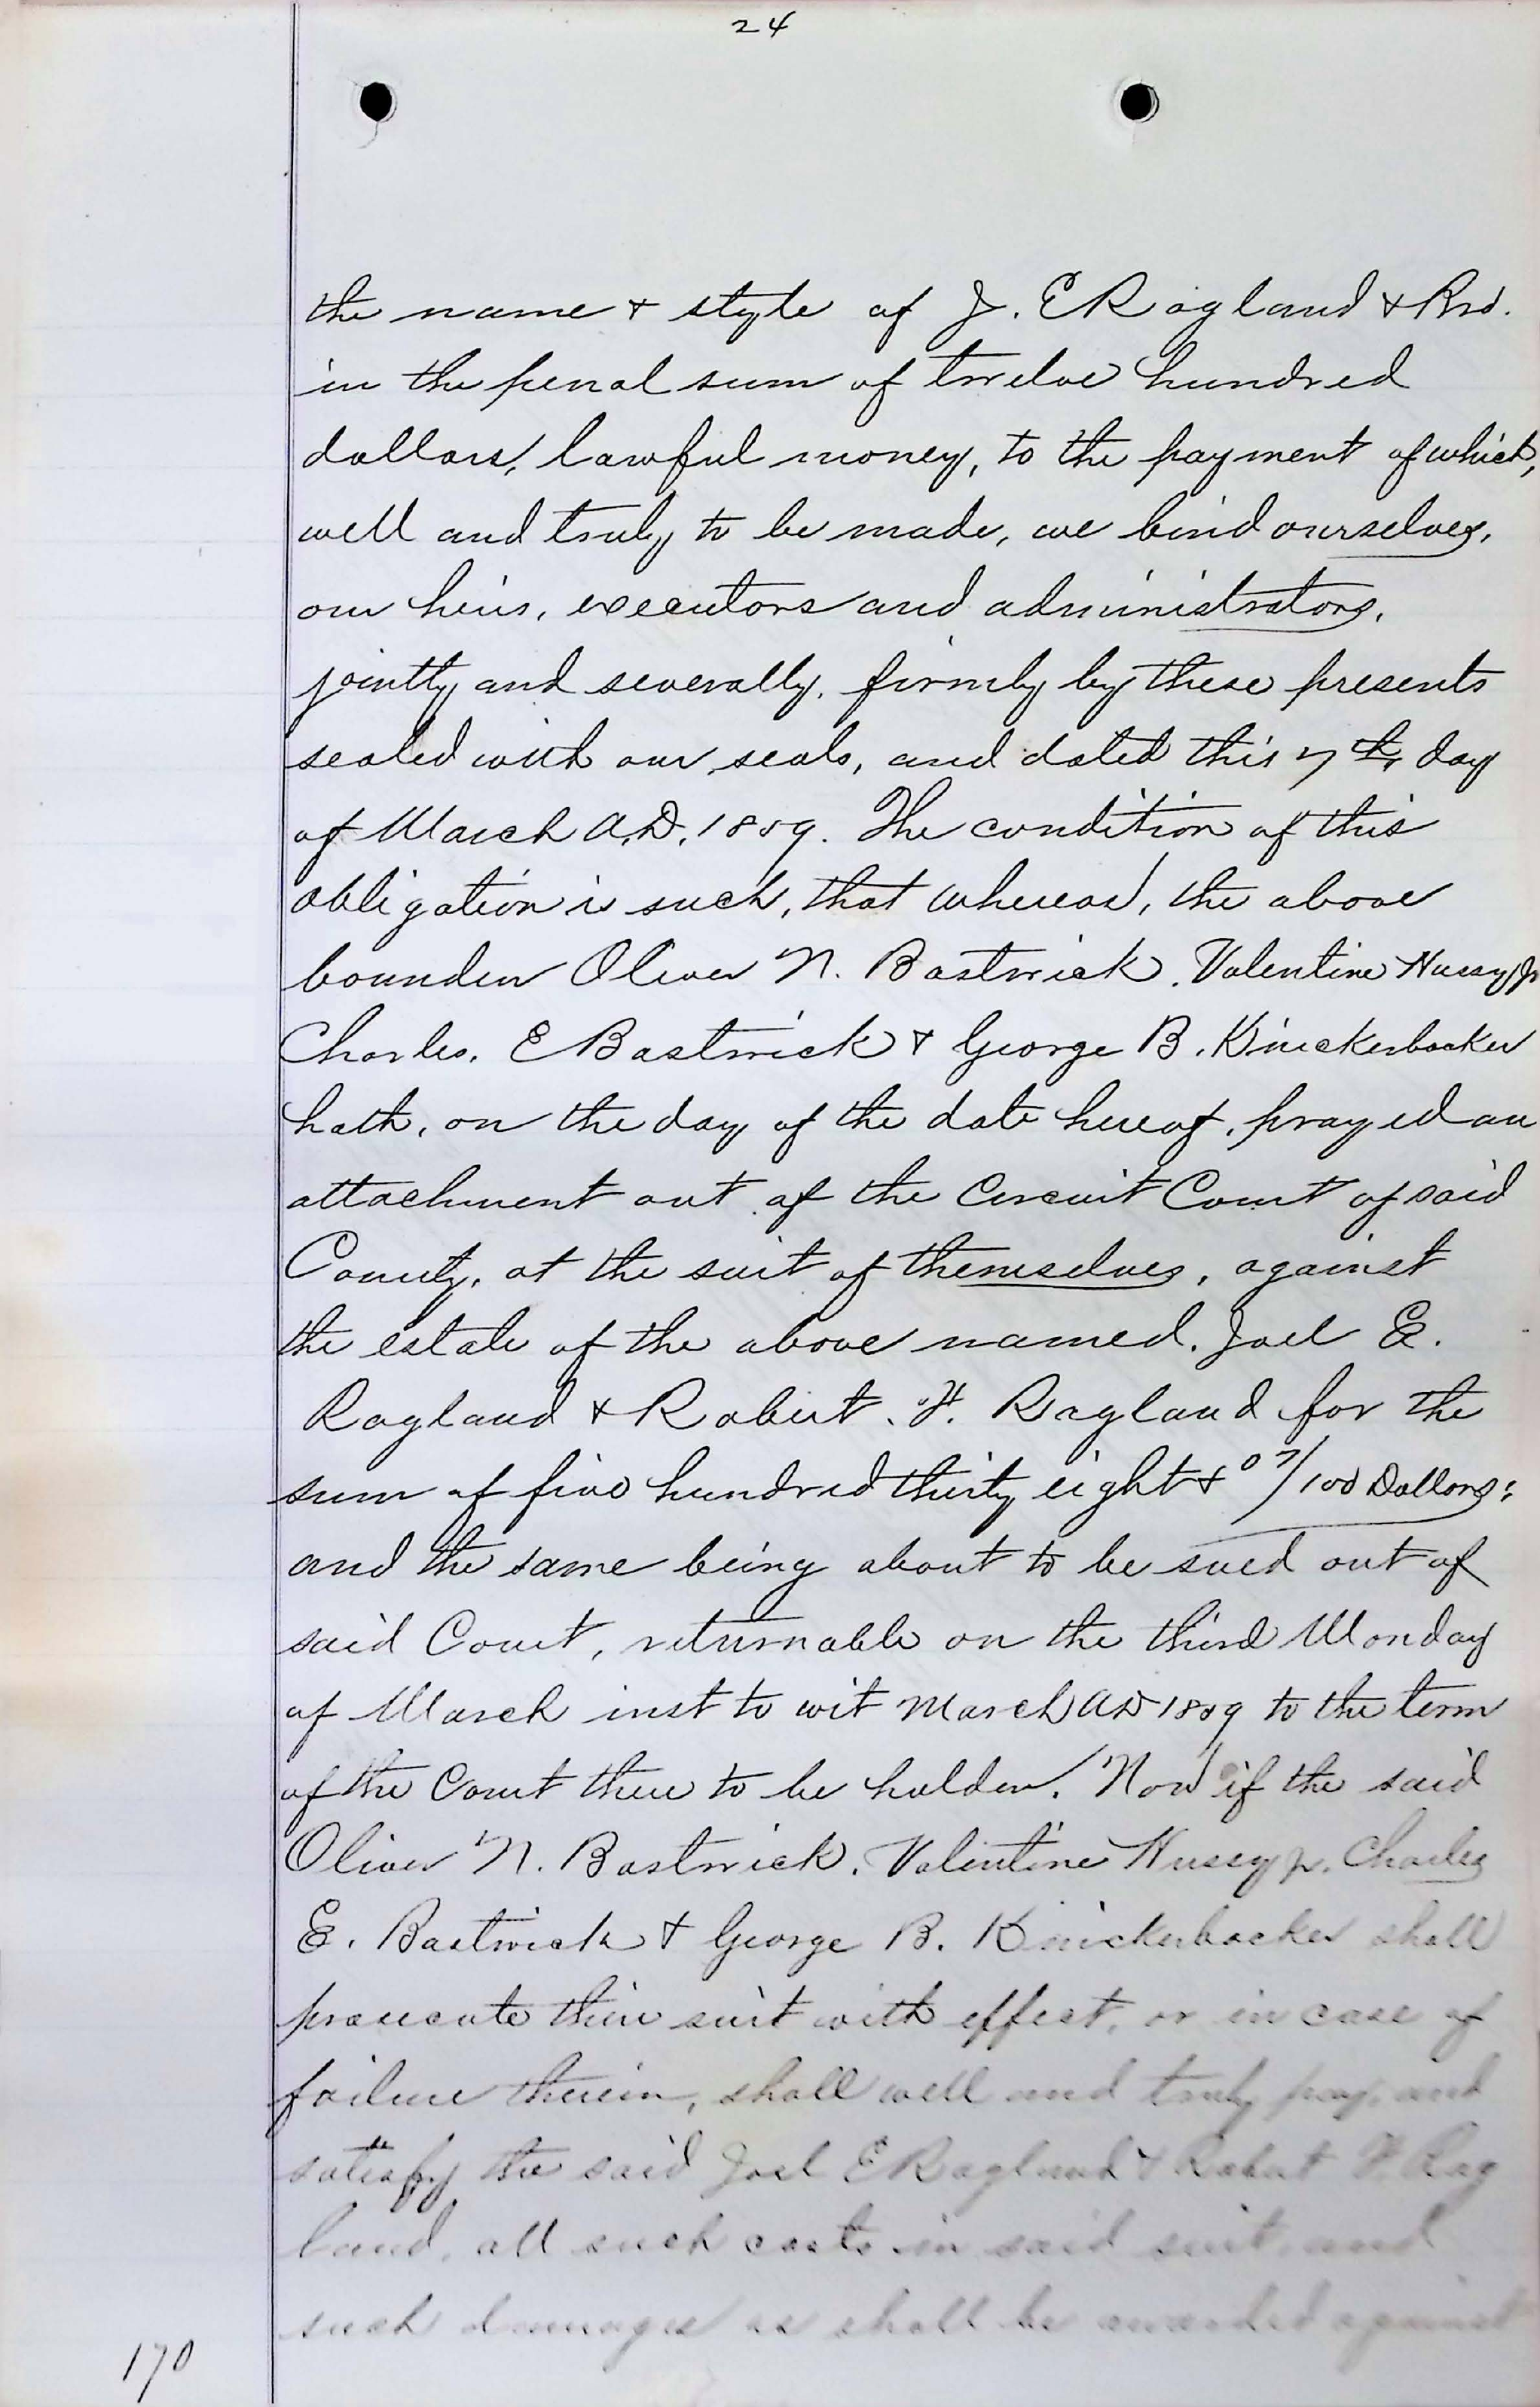 24
the name + style of J. E Ragland + Bro.
in the penal sum of twelve hundred
dollars, lawful money, to the payment of which,
well and truly to be made, we bind ourselves,
our heirs, executors and administrators,
jointly and severally, firmly by these presents
sealed with our seals, and dated this 7th day
of March A.D. 1859. The condition of this
obligation is such, that whereas, the above
bounden Oliver N. Bostwick. Valentine Hussy Jr
Charles. E Bostwick + George B. Knickerbocker
hath, on the day of the date hereof, prayed an
attachment out of the Circuit Court of said
County, at the suit of themselves, against
the estate of the above named. Joel E.
Ragland + Robert. H. Ragland for the
sum of five hundred thirty eight + 07/100 Dollars;
and the same being about to be sued out of
said Court, returnable on the third Monday
of March inst to wit March AD 1859 to the term
of the Court then to be holden. Now if the said
Oliver N. Bostwick. Valentine Hussy jr. Charles
E. Bostwick + George B. Knickerbocker shall
prosecute their suit with effect, or in case of
failure therein, shall well and truly pay, and
satisfy the said Joel E Ragland + Robert H. Rag
land, all such costs in said suit, and
such damages as shall be awarded against
170